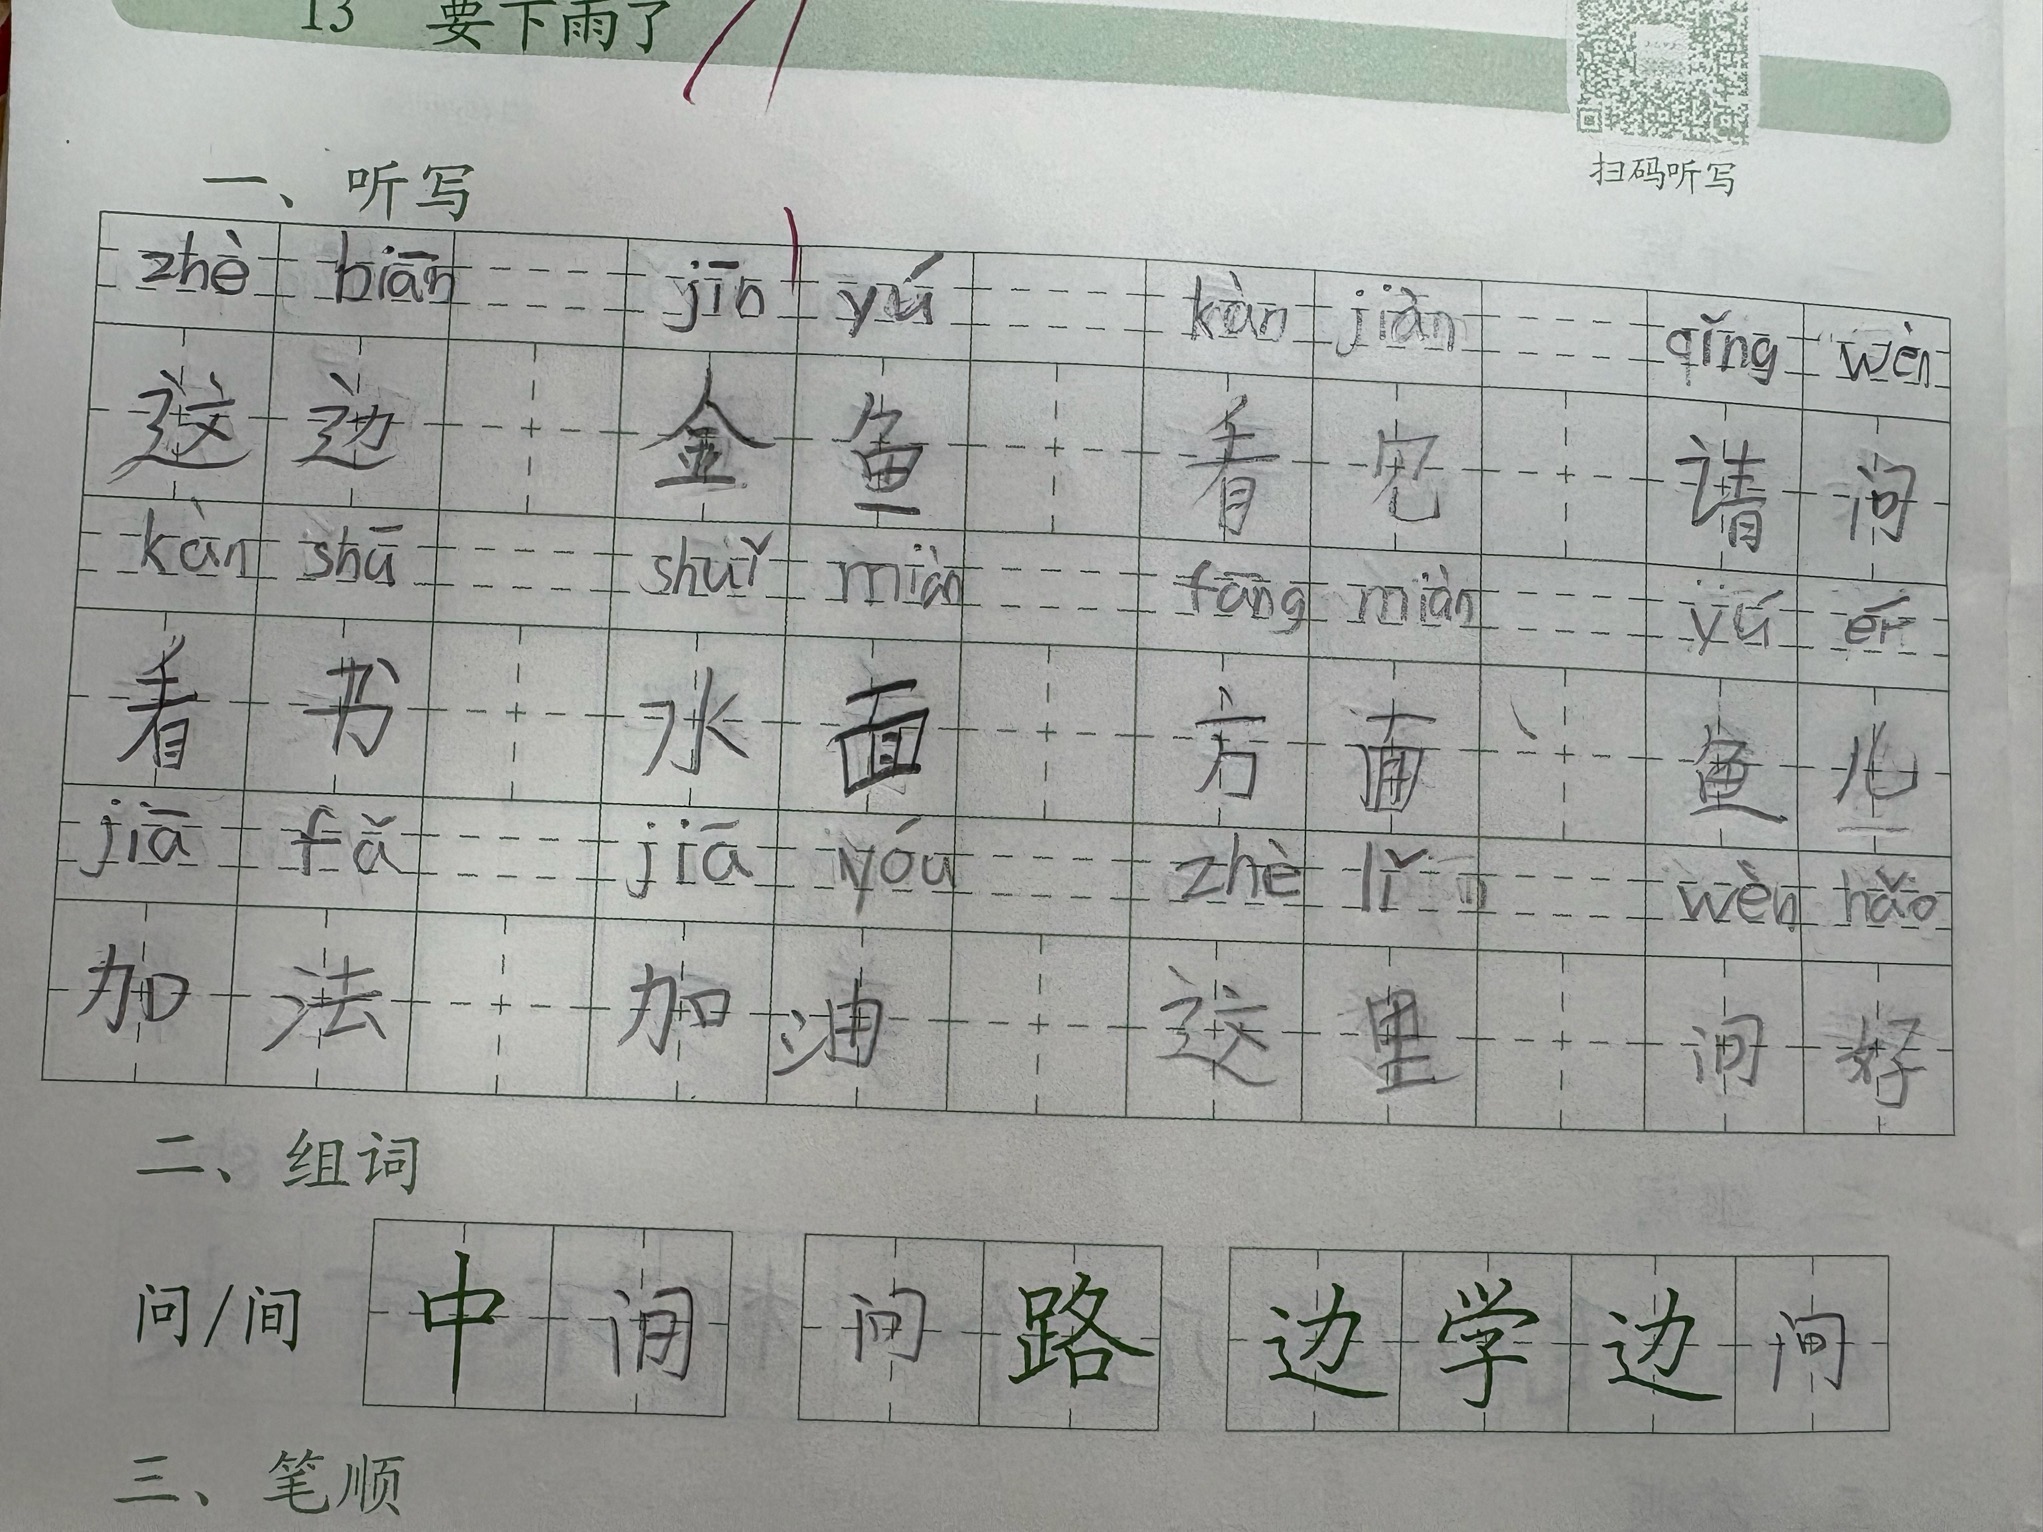 13 要下雨了
扫码听写
一、听写
zhè biān jīn yú kàn jiàn qǐng wèn
这 边 金 鱼 看 见 请 问
kàn shū shuǐ miàn fāng miàn yú ér
看 书 水 面 方 面 鱼 儿
jiā fǎ jiā yóu zhè lǐ wèn hǎo
加 法 加 油 这 里 问 好
二、组词
问/间 中 间 问 路 边 学 边 问
三、笔顺